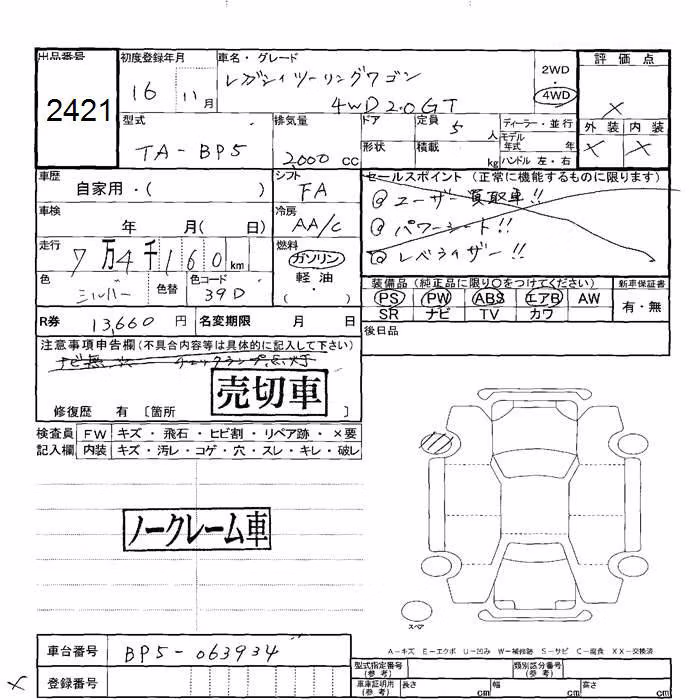 出品番号
2421
初度登録年月
16 11月
車名・グレード
レガシィツーリングワゴン
4WD 2.0GT
2WD
・
4WD
評価点
×
外装 内装
× ×
型式
TA-BP5
排気量
2000 cc
ドア
定員 5 人
形状
積載 kg
ディーラー・並行
モデル年式 年
ハンドル 左・右
車歴
自家用・( )
シフト
FA
セールスポイント (正常に機能するものに限ります)
@ユーザー買取車!!
@パワーシート!!
@レベライザー!!
車検
年 月( 日)
冷房
AA/C
走行
7万4千160km
燃料
ガソリン
軽油
( ・ )
色
シルバー
色替
色コード
39D
装備品 (純正品に限り○をつけてください)
PS PW ABS エアB AW
SR ナビ TV カワ
新車保証書
有・無
R券 13,660円
名変期限 月 日
後日品
注意事項申告欄(不具合内容等は具体的に記入して下さい)
ナビ無 チェックランプ点灯
売切車
修復歴 有 〔箇所 〕
検査員 FW キズ・飛石・ヒビ割・リペア跡・×要
記入欄 内装 キズ・汚レ・コゲ・穴・スレ・キレ・破レ
ノークレーム車
スペア
A-キズ E-エクボ U-凹み W-補修跡 S-サビ C-腐食 XX-交換済
車台番号 BP5-063934
× 登録番号
型式指定番号(参考)
類別区分番号(参考)
車庫証明用(参考) 長さ cm 幅 cm 高さ cm